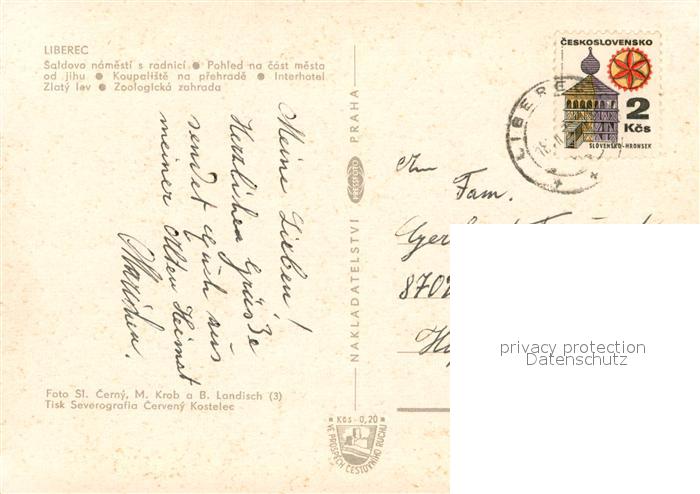 LIBEREC
Šaldovo náměstí s radnicí ● Pohled na část města
od jihu ● Koupaliště na přehradě ● Interhotel
Zlatý lev ● Zoologická zahrada
Meine Lieben!
Herzlichen Grüße
sendet Euch aus
meiner Alten Heimat
Foto Sl. Černý, M. Krob a B. Landisch (3)
Tisk Severografia Červený Kostelec
NAKLADATELSTVÍ PRESSFOTO PRAHA
Kčs 0,20
VE PROSPĚCH CESTOVNÍHO RUCHU
ČESKOSLOVENSKO
2
Kčs
SLOVENSKO-HRONSEK
LIBEREC
An
Fam.
870
privacy protection
Datenschutz